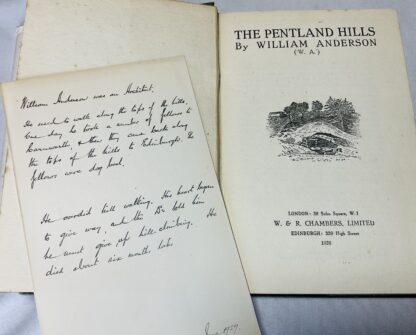 THE PENTLAND HILLS
By WILLIAM ANDERSON
(W. A.)
LONDON: 38 Soho Square, W.1
W. & R. CHAMBERS, LIMITED
EDINBURGH: 339 High Street
1926
William Anderson was an Architect.
He used to walk along the tops of the hills.
One day he took a number of fellows to
Carnwath, & then they came back along
the tops of the hills to Edinburgh. The
fellows were dog tired.
He overdid hill walking. His heart began
to give way, and the Dr told him
he must give up hill climbing. He
died about six months later
1927.